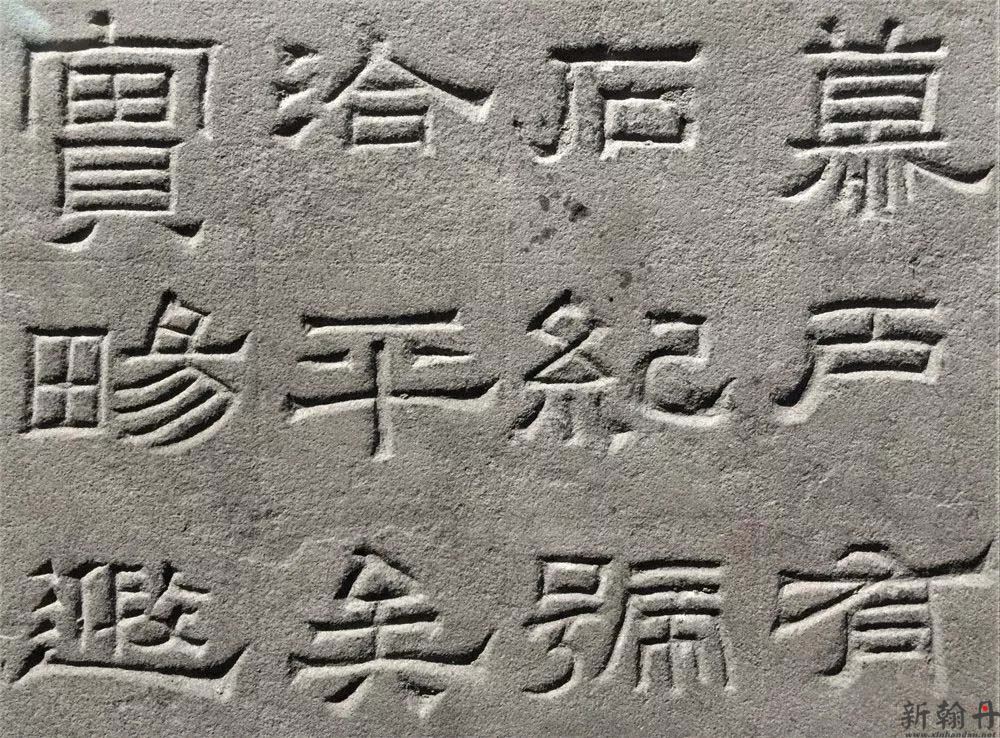 慕戶有
石紀號
洽平矣
實畼遐
新翰丹
www.xinhandan.net